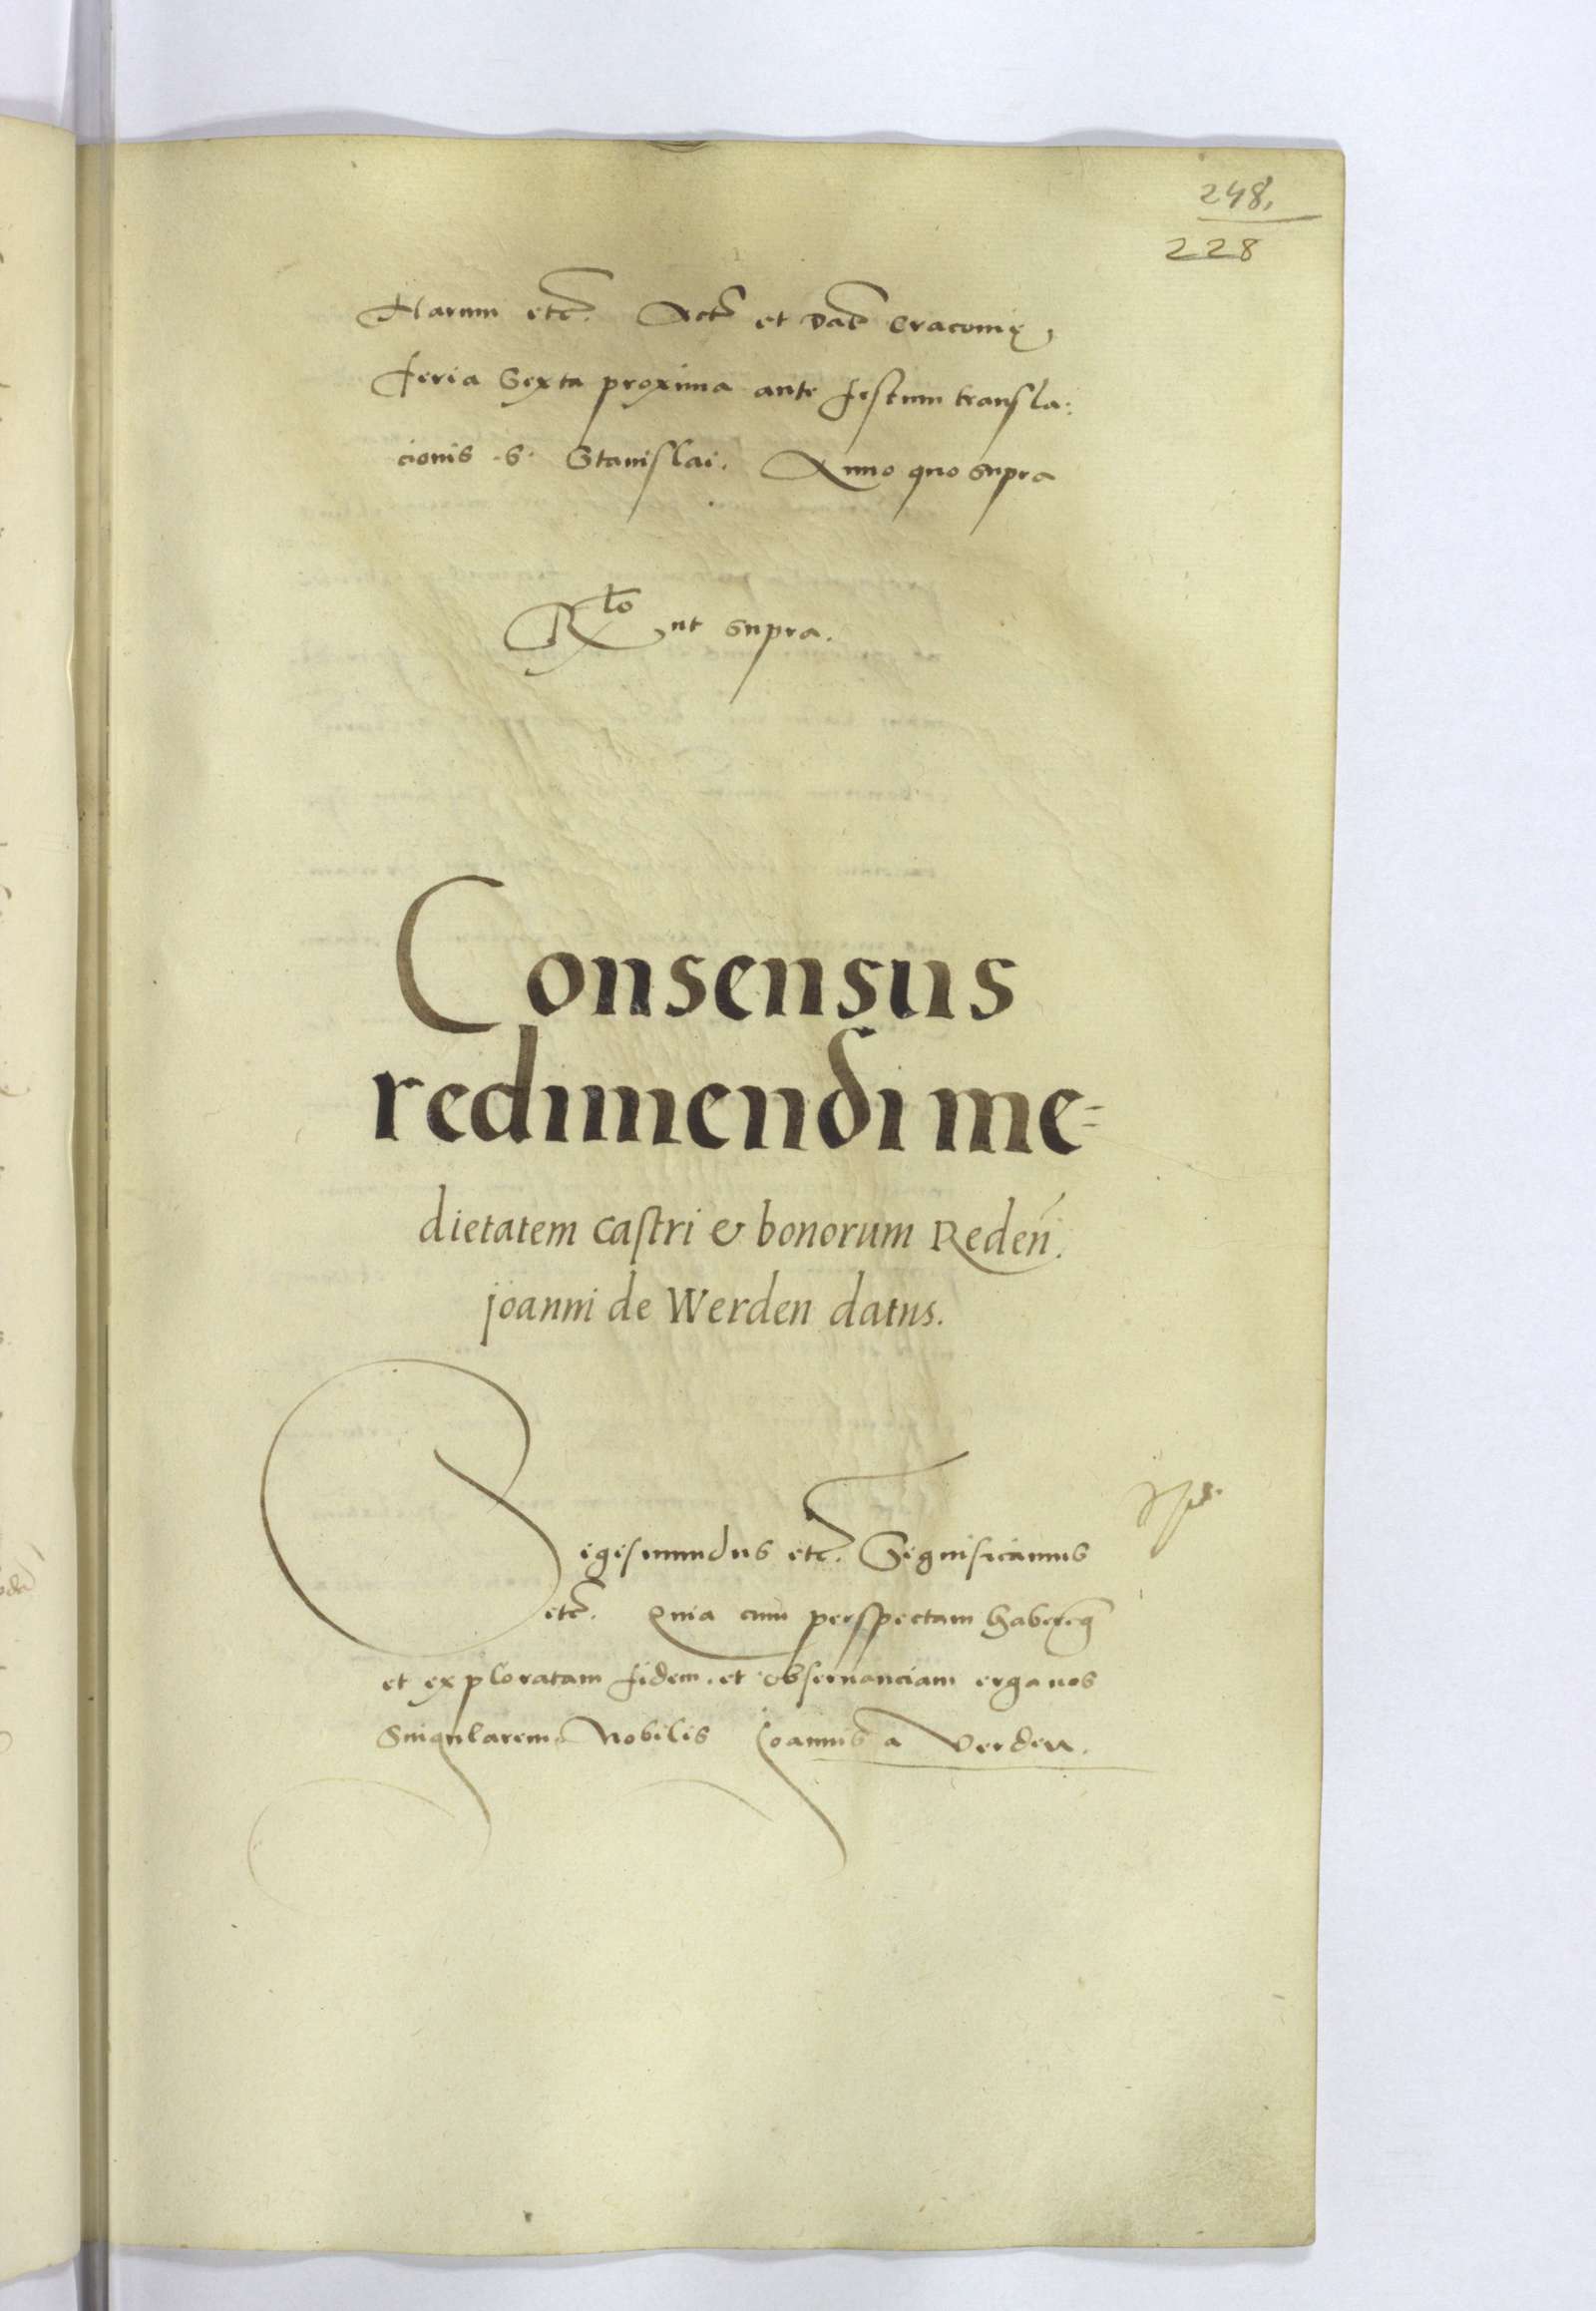 248,
228
Harum etc. Act et Dat Cracouię,
feria Sexta proxima ante festum transla:
cionis .S. Stanislai. Anno quo supra
Rlo ut supra.
Consensus
redimendi me=
dietatem castri & bonorum Reden.
joanni de Werden datus.
Sigismundus etc. Significamus
etc. Quia cum perspectam haberemꝫ
et exploratam fidem et obseruanciam erga nos
Singularem Nobilis Joannis a Verden.